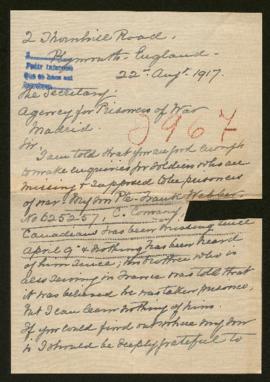 2 Thornhill Road.
Plymouth - England.
22nd Augt. 1917.
The Secretary
Agency for Prisoners of War
Madrid.
2967
Sir,
I am told that you are good enough
to make enquiries for soldiers who are
missing & supposed to be prisoners
of war. My son Pte. Frank Webber
No 625257, C. Company,
Canadians has been missing since
April 9th & nothing has been heard
of him since; his brother who is
also serving in France was told that
it was believed he was taken prisoner,
but I can learn nothing of him.
If you could find out where my son
is I should be deeply grateful to